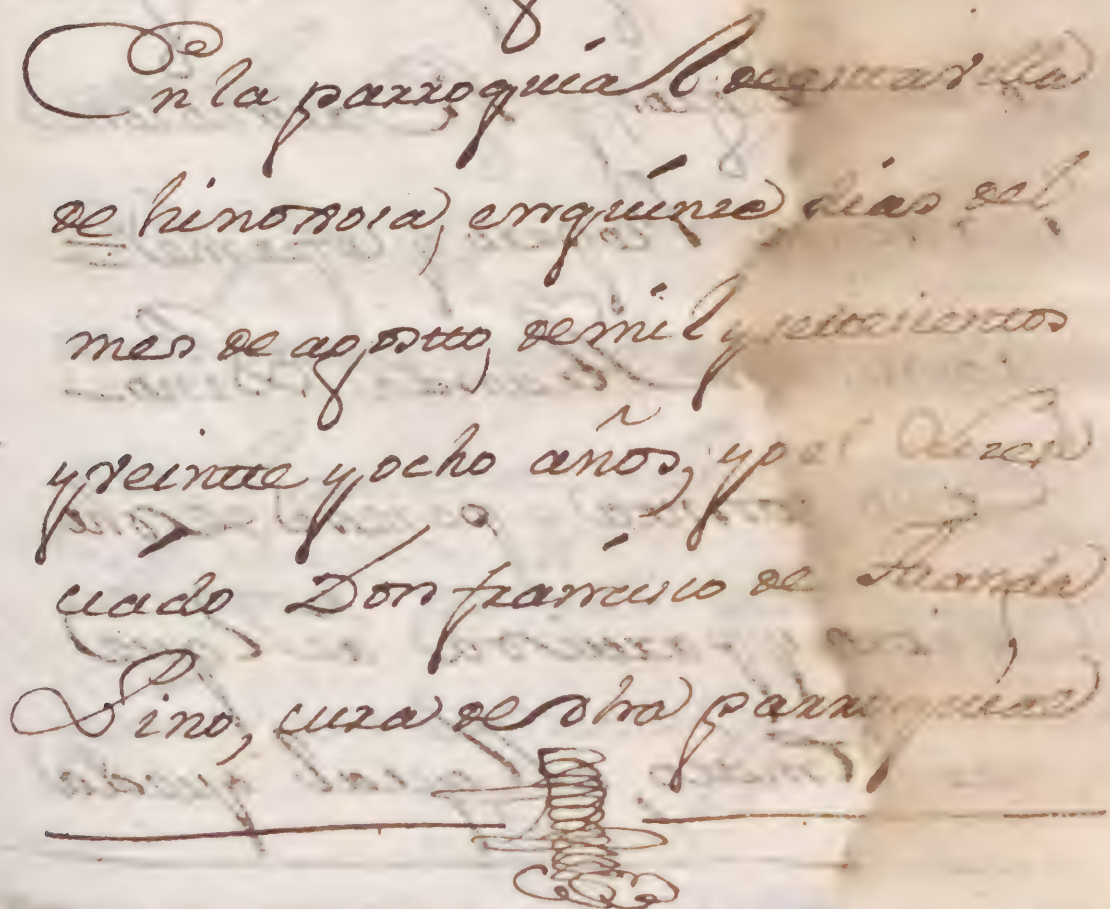 En la parroquial de esta villa
de hinoxosa, en quinze dias del
mes de agostto, de mil y setecientos
y veintte y ocho años, yo el Lizen
ciado Don francisco de Aranda
Pino, cura de dha parroquial